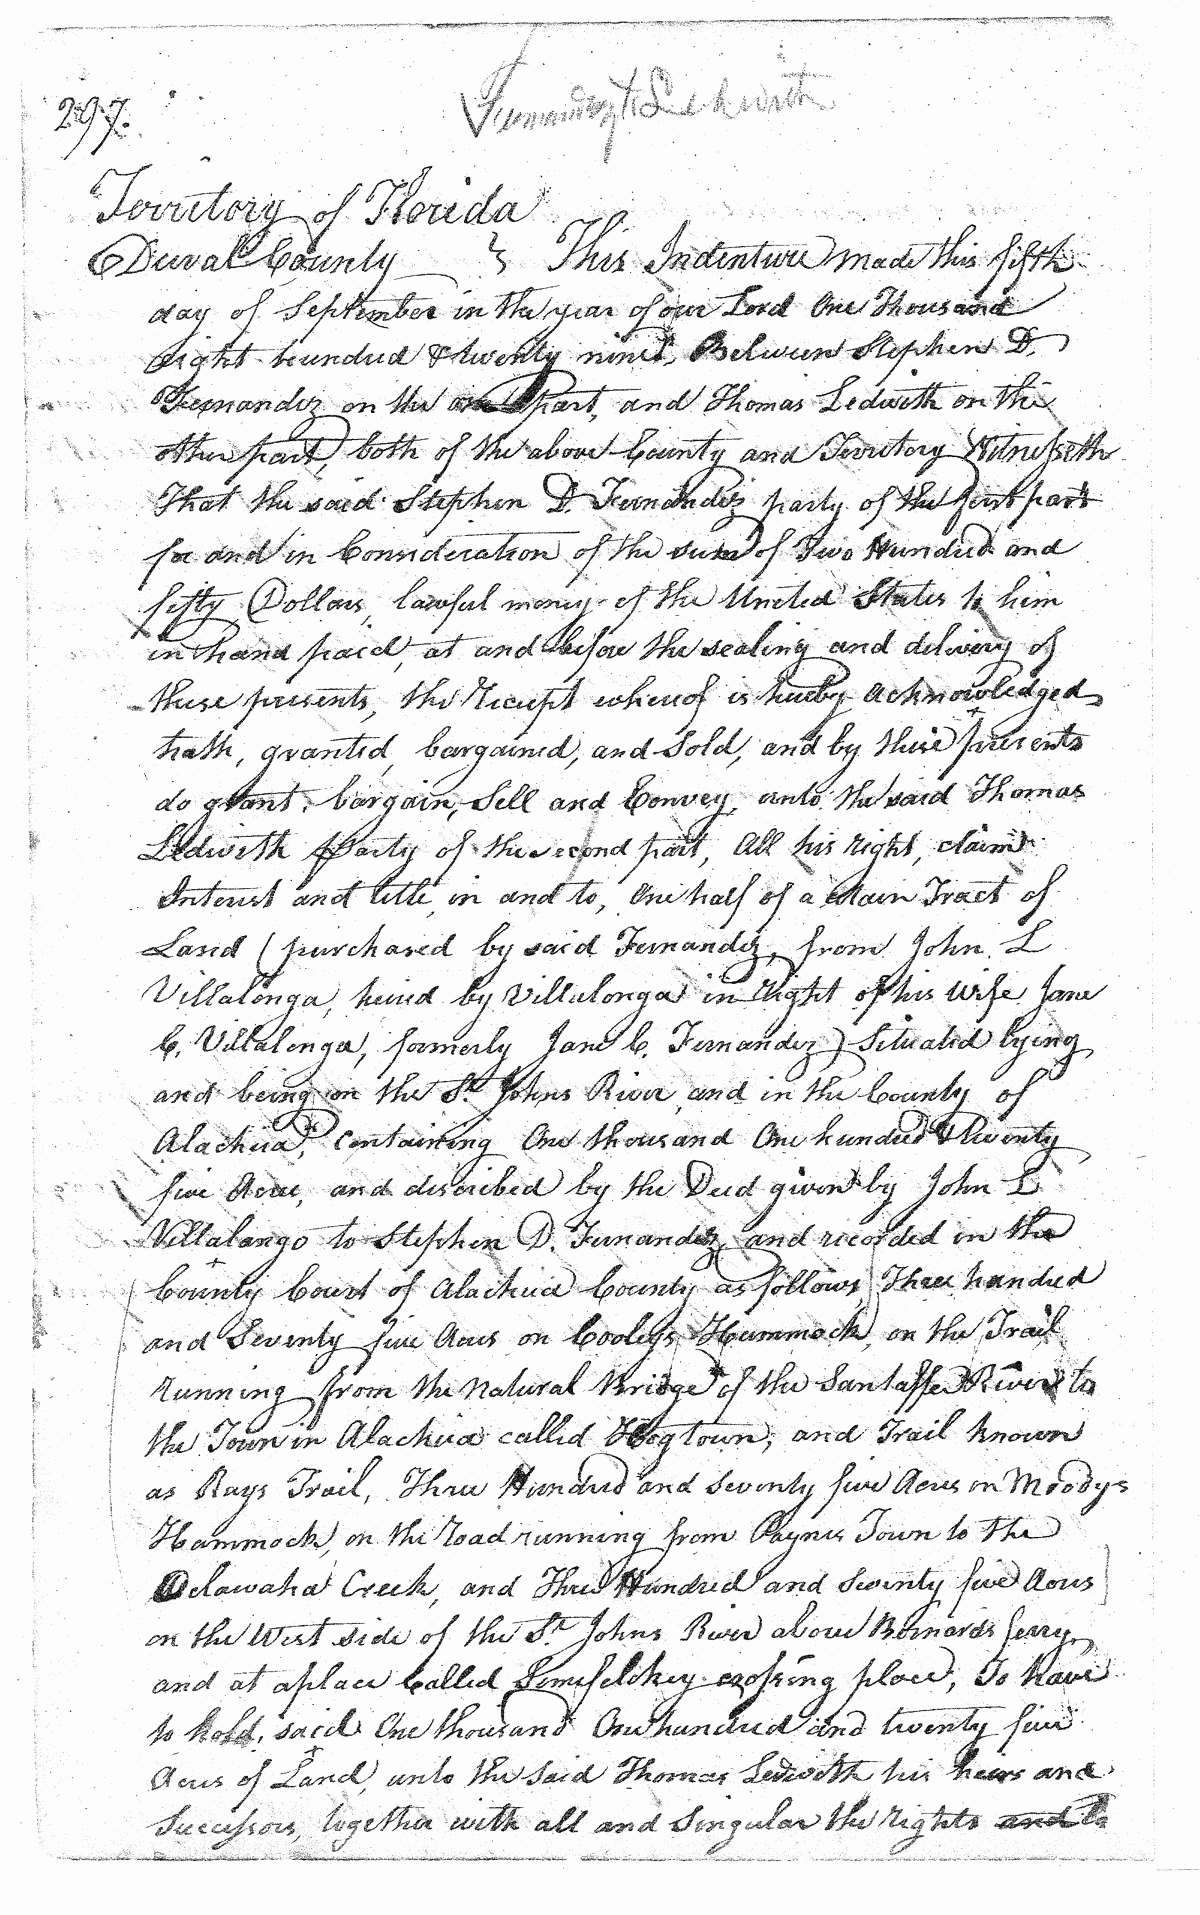 297.
Fernandez to Ledwith
Territory of Florida
Duval County } This Indenture made this fifth
day of September in the year of our Lord One Thousand
eight hundred & twenty nine, Between Stephen D.
Fernandez on the one part, and Thomas Ledwith on the
other part, both of the above County and Territory Witnesseth
That the said Stephen D. Fernandez party of the first part
for and in Consideration of the sum of Two Hundred and
fifty Dollars, lawful money of the United States to him
in hand paid, at and before the sealing and delivery of
these presents, the Receipt whereof is hereby acknowledged
hath, granted, bargained, and Sold, and by these presents
do grant, bargain, Sell and Convey, unto the said Thomas
Ledwith Party of the second part, All his right, claim
Interest and title, in and to, One half of a certain Tract of
Land (purchased by said Fernandez, from John L
Villalonga, heired by Villalonga in right of his Wife Jane
C. Villalonga, formerly Jane C. Fernandez) Situated lying
and being on the St. Johns River, and in the County of
Alachua, Containing One thousand One hundred & twenty
five Acres, and discribed by the Deed given by John L
Villalango to Stephen D. Fernandez, and recorded in the
County Court of Alachua County as follows, Three hundred
and Seventy five Acres on Cooleys Hummock, on the Trail
running from the Natural Bridge of the Santaffee River to
the Town in Alachua called Hogtown, and Trail known
as Rays Trail, Three Hundred and Seventy five Acres on Moodys
Hammock, on the road running from Paynes Town to the
Oclawaha Creek, and Three Hundred and Seventy five Acres
on the West side of the St. Johns River above Bernards ferry,
and at a place Called crossing place, To have
to hold, said One thousand One hundred and twenty five
Acres of Land, unto the said Thomas Ledwith his heirs and
Successors, together with all and Singular the rights and to